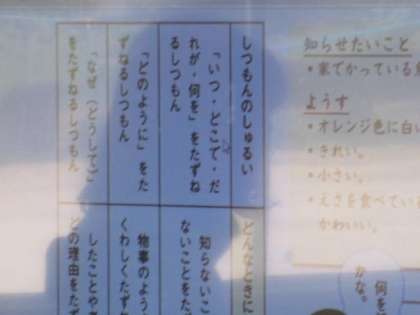 知らせたいこと
・家でかっている
ようす
・オレンジ色に白い
・きれい。
・小さい。
・えさを食べている
かわいい。
何を
かな。
しつもんのしゅるい
「いつ・どこで・だ
れが・何を」をたずね
るしつもん
「どのように」をた
ずねるしつもん
「なぜ(どうして)」
をたずねるしつもん
どんなときに
知らないこ
ないことをた
物事のよう
くわしくたずね
したことや
どの理由をたず